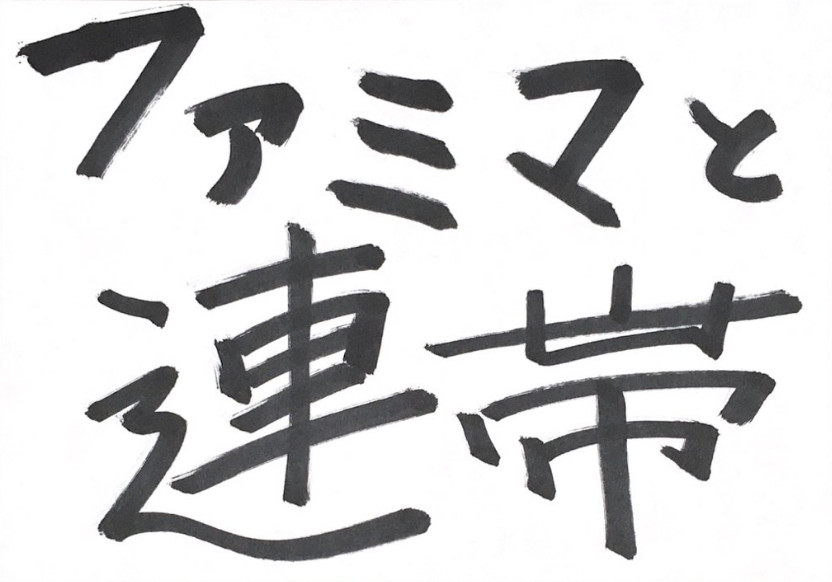 ファミマと
連帯